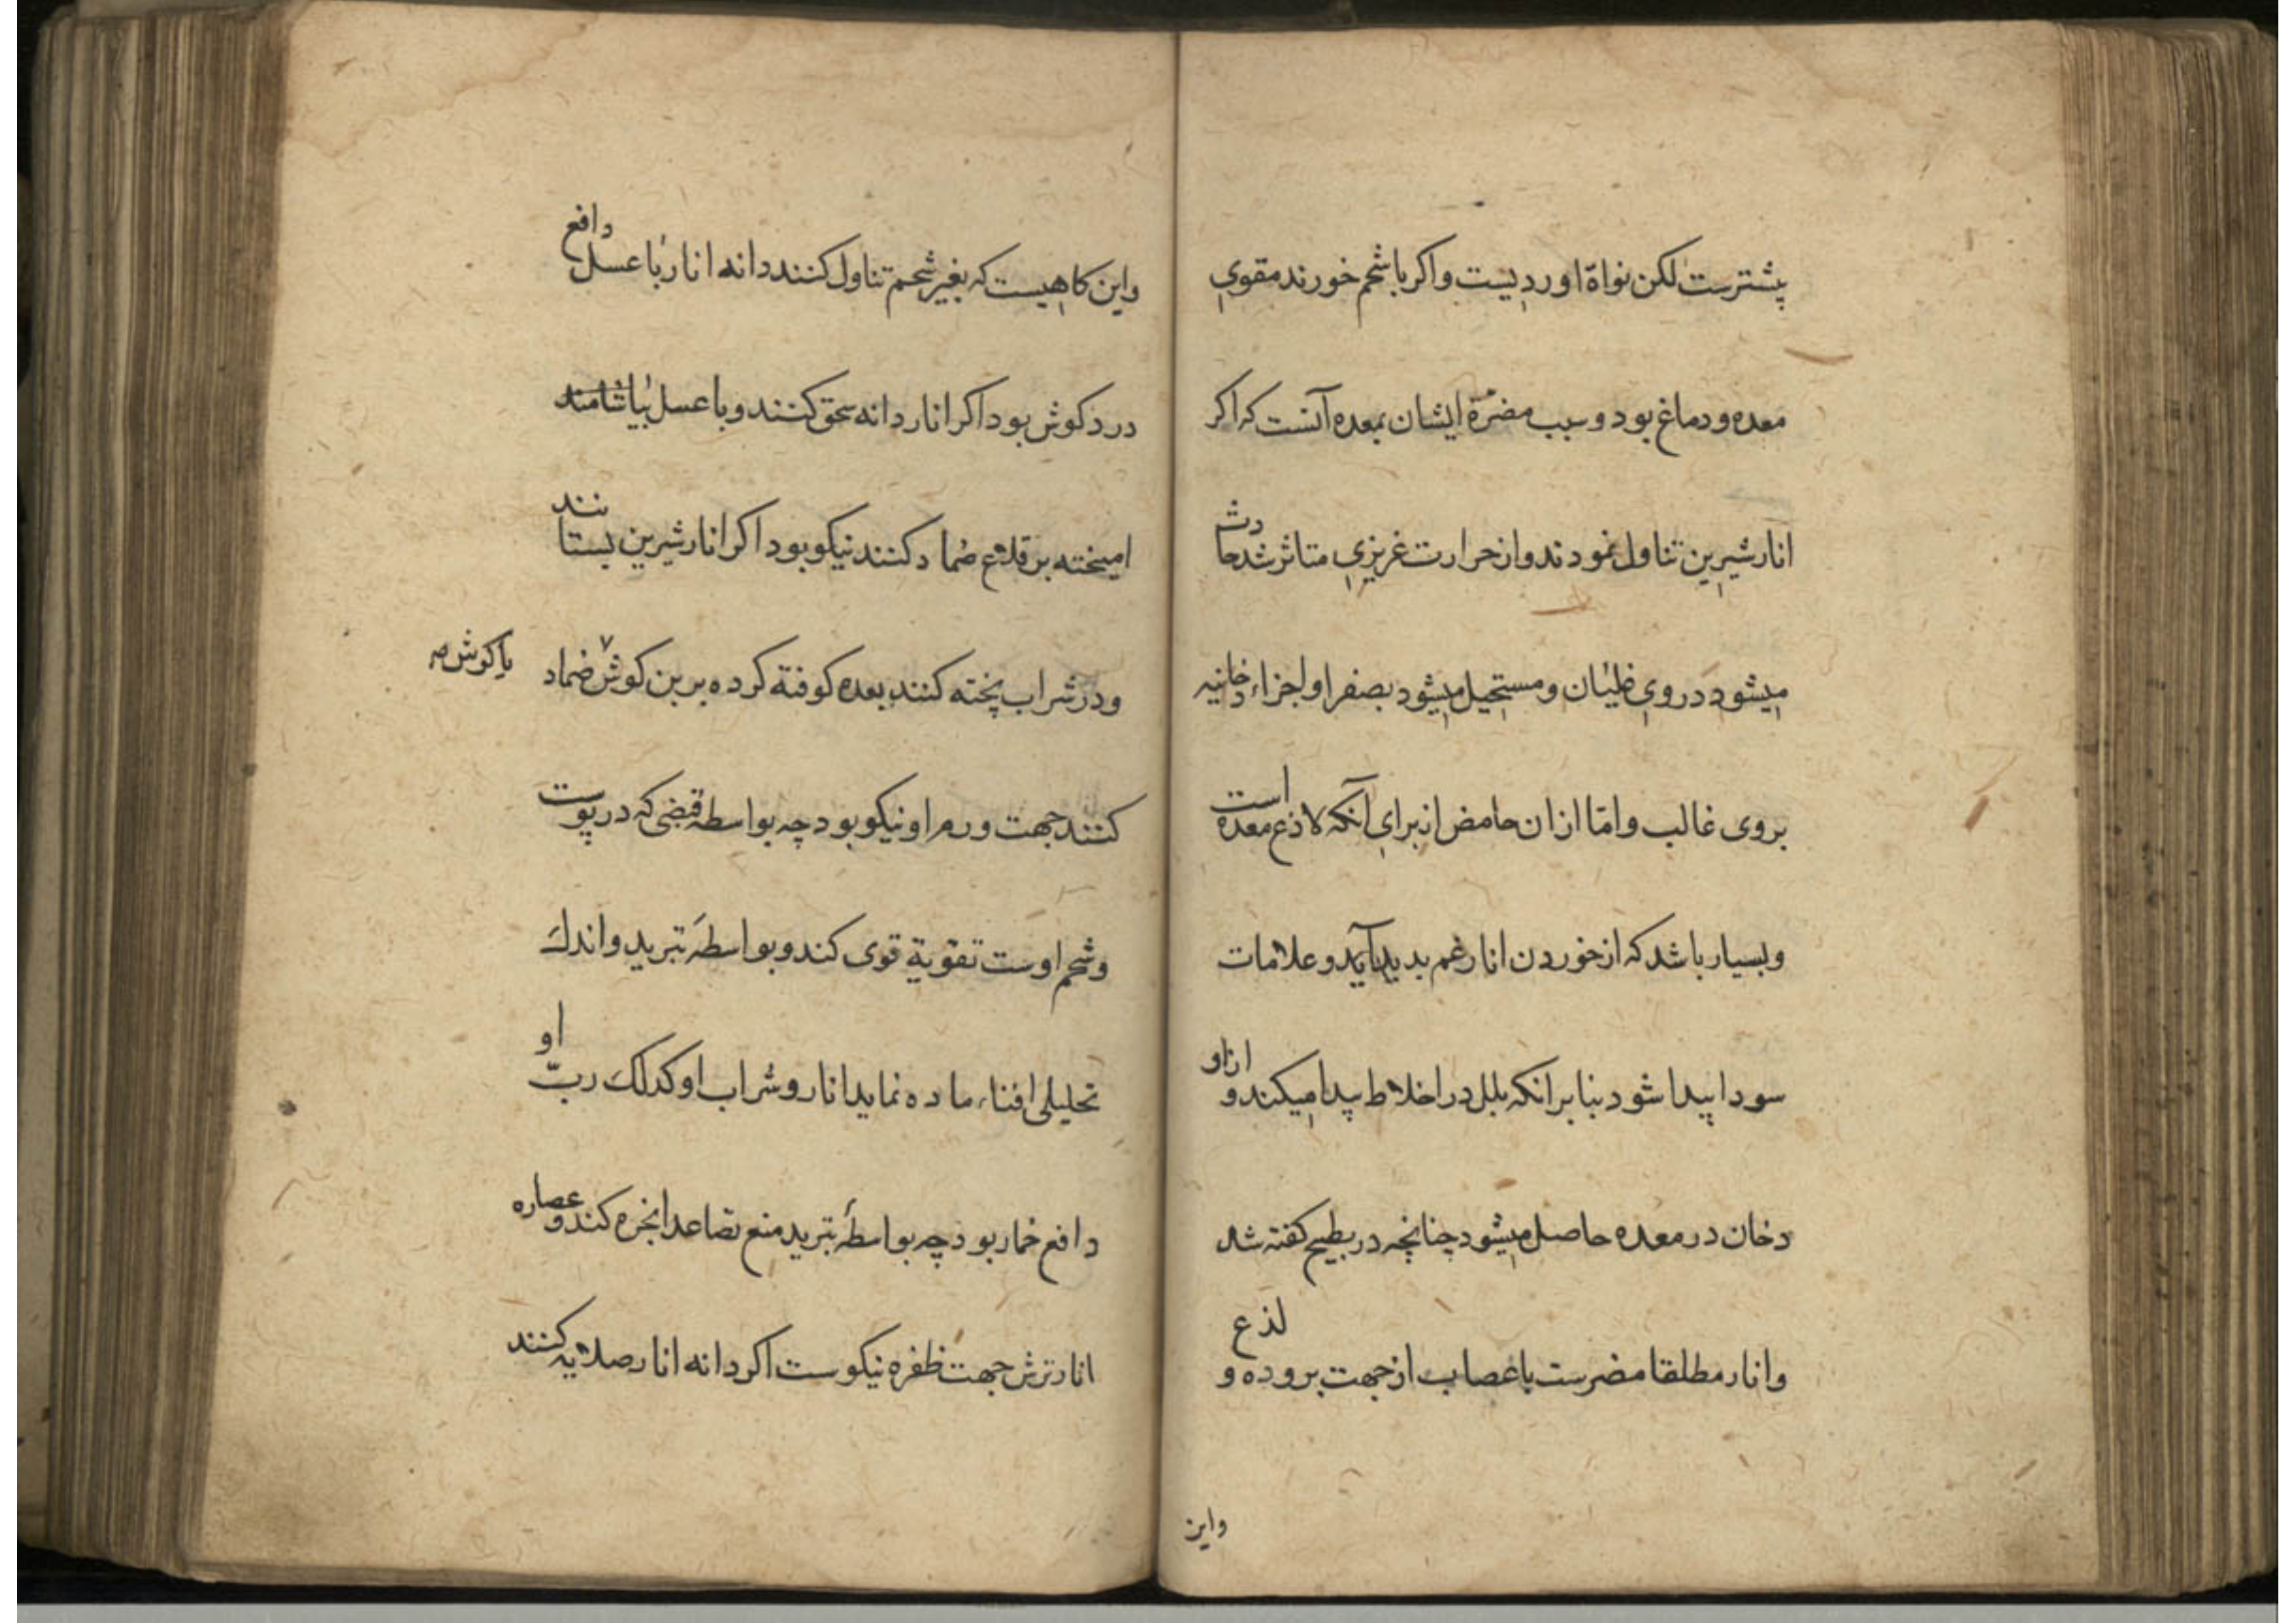 پشترست لکن نواة او ردیست واکر با شحم خورند مقوی
معده و دماغ بود و سبب مضرّة ایشان بمعده آنست که اکر
انار شیرین تناول نمودند و از حرارت غریزی متاثر شد حادث
میشود در وی غلیان و مستحیل میشود بصفرا و اجزاء دخانیه
بروی غالب و امّا ازان حامض از برای آنکه لاذع معده است
و بسیار باشد که از خوردن انار غم بدید آید و علامات
سودا پیدا شود بنابر انکه بلل در اخلاط پیدا میکند و ازاو
دخان در معده حاصل میشود چنانچه در بطیخ کفته شد
وانار مطلقا مضرست باعصاب از جهت بروده و لذع
واین
واین کاهیست که بغیر شحم تناول کنند دانه انار با عسل دافع
درد کوش بود اکر انار دانه سحق کنند و با عسل بیاشامند
امیخته بر قلاع ضماد کنند نیکو بود اکر انار شیرین بستانند
ودر شراب پخته کنند بعده کوفته کرده بر بن کوش ضماد
یا کوش صه
کنند جهت ورم او نیکو بود چه بواسطه قبضی که در پوست
و شحم اوست تقویة قوی کند و بواسطه تبرید و اندك
تحلیلی افناء ماده نماید انار و شراب او کذلك ربّ او
دافع خمار بود چه بواسطهٔ تبرید منع تصاعد ابخره کند و عصاره
انار ترش جهت ظفره نیکوست اکر دانه انار صلایه کنند